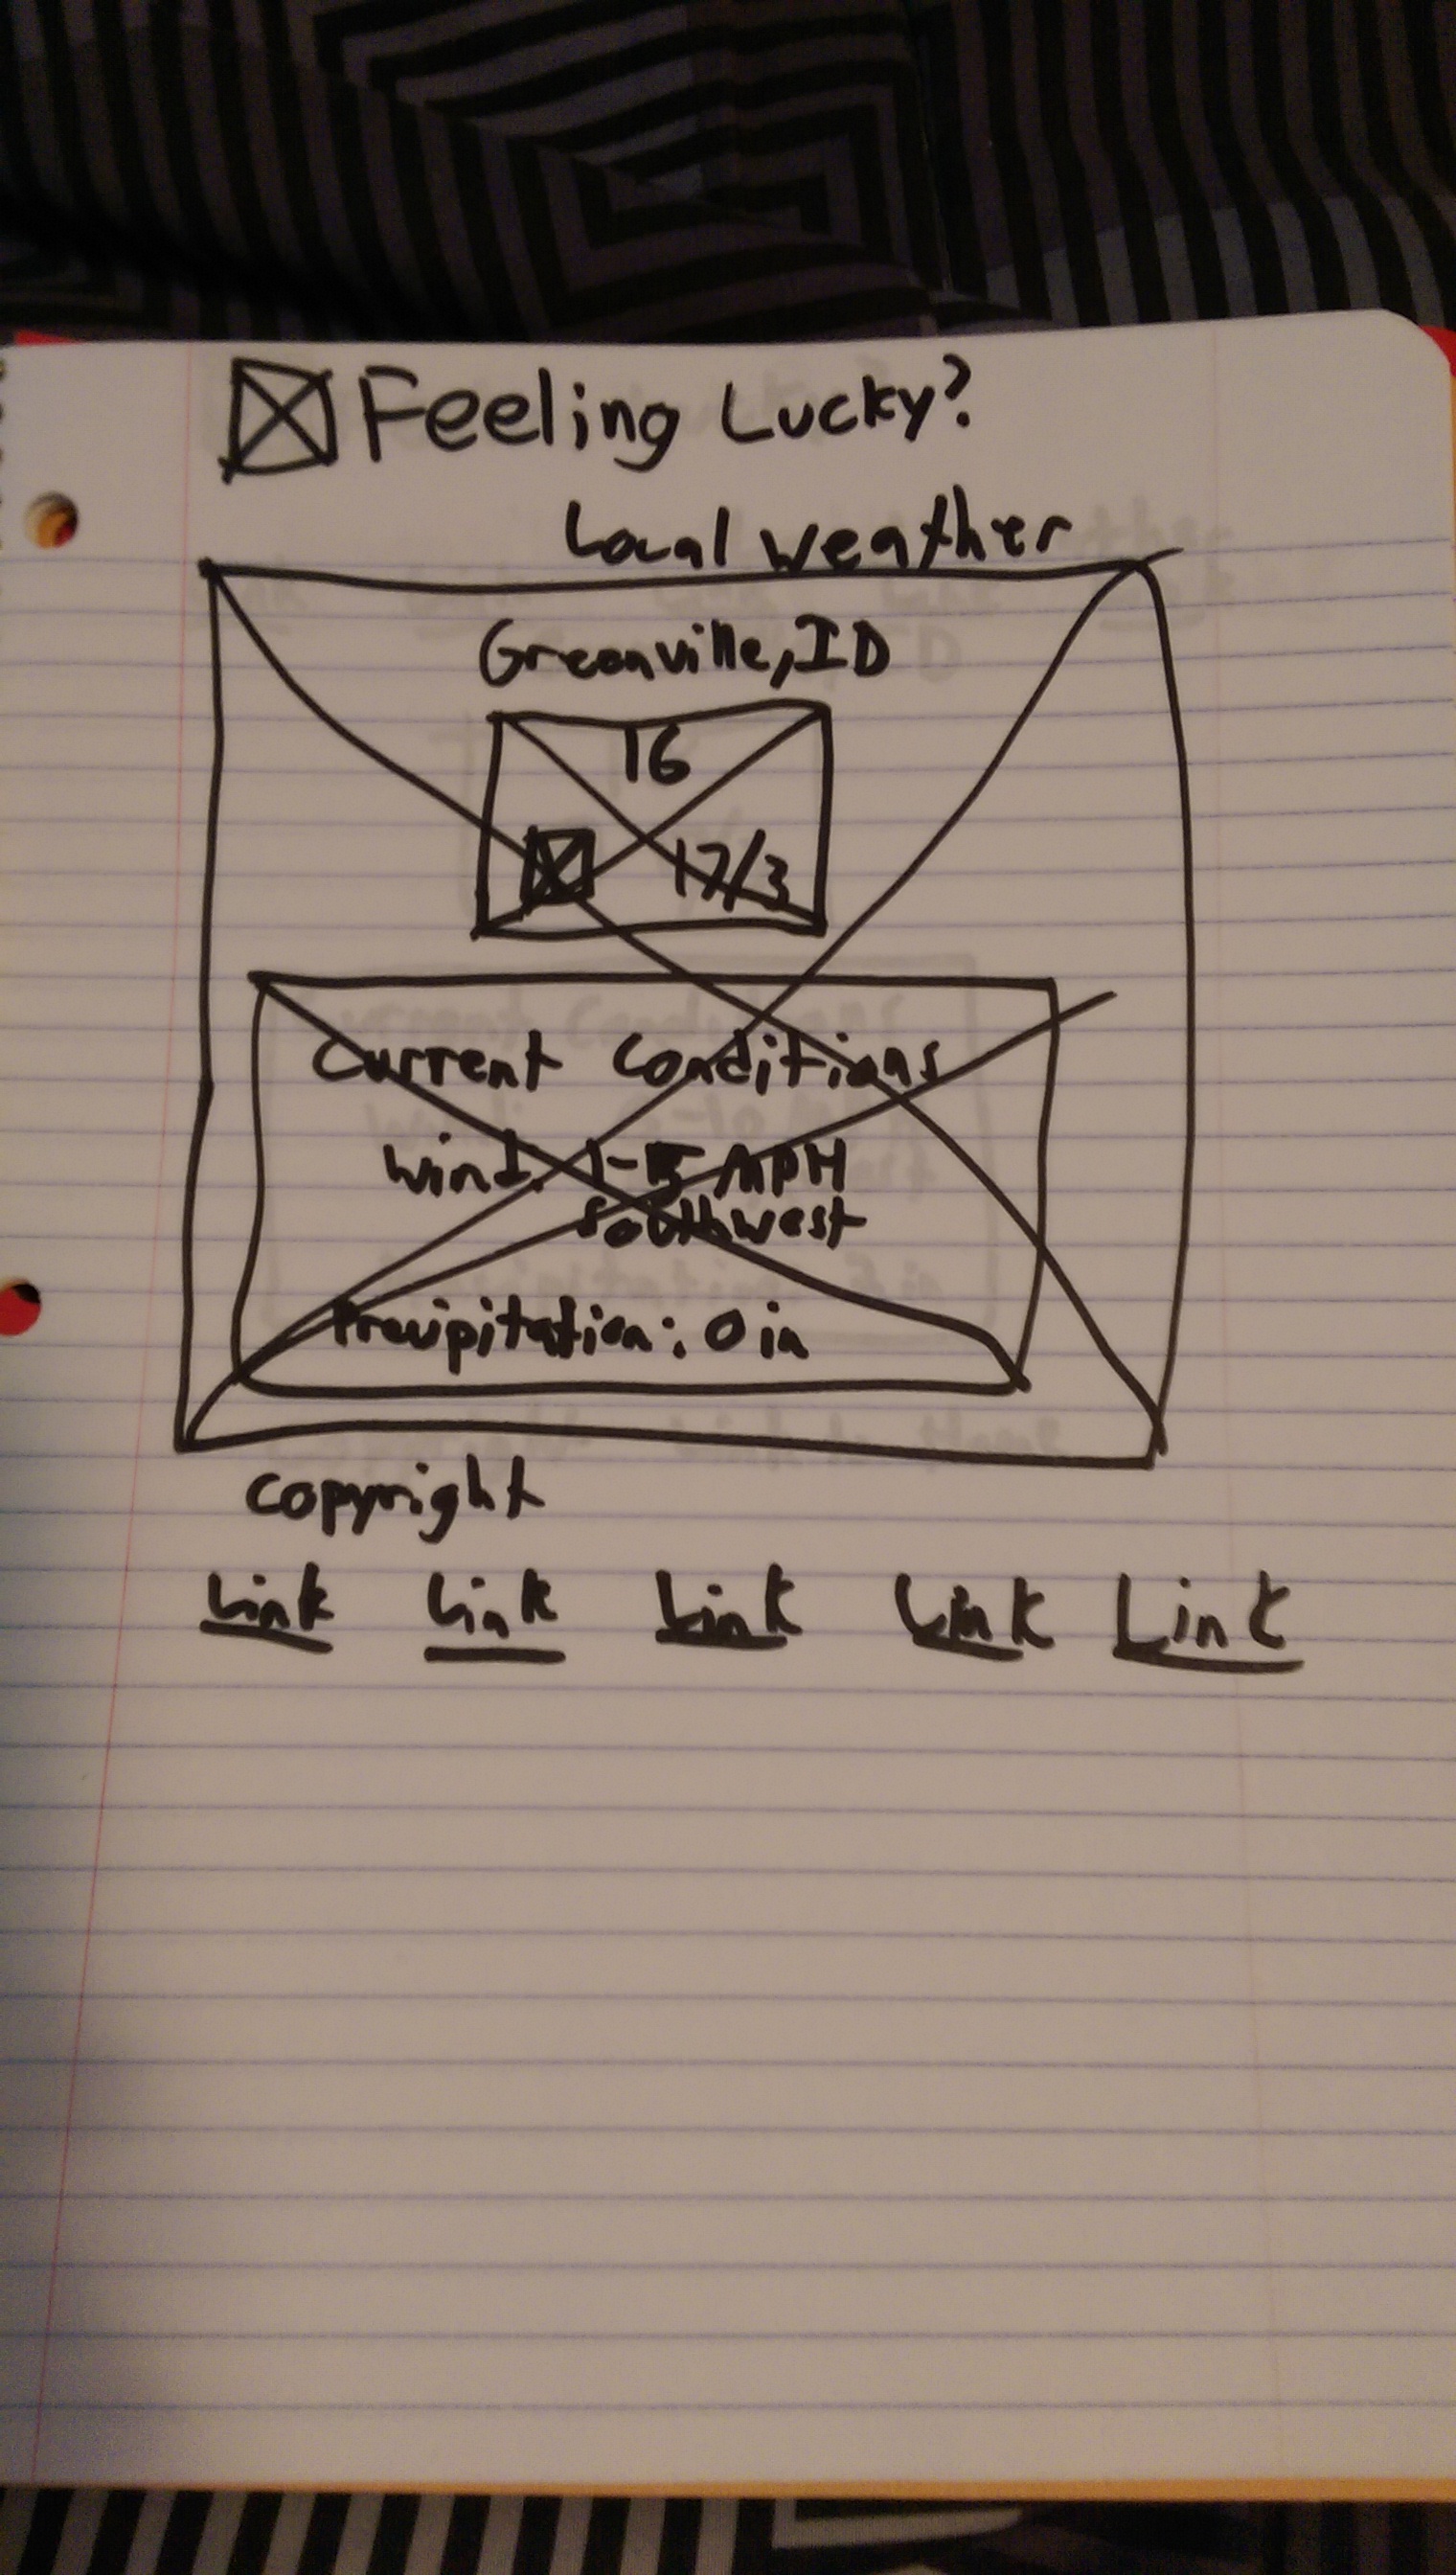 Feeling Lucky?
Local weather
Greenville, ID
16
17/3
Current Conditions
Wind: MPH
Southwest
Precipitation: 0 in
Copyright
Link Link Link Link Link